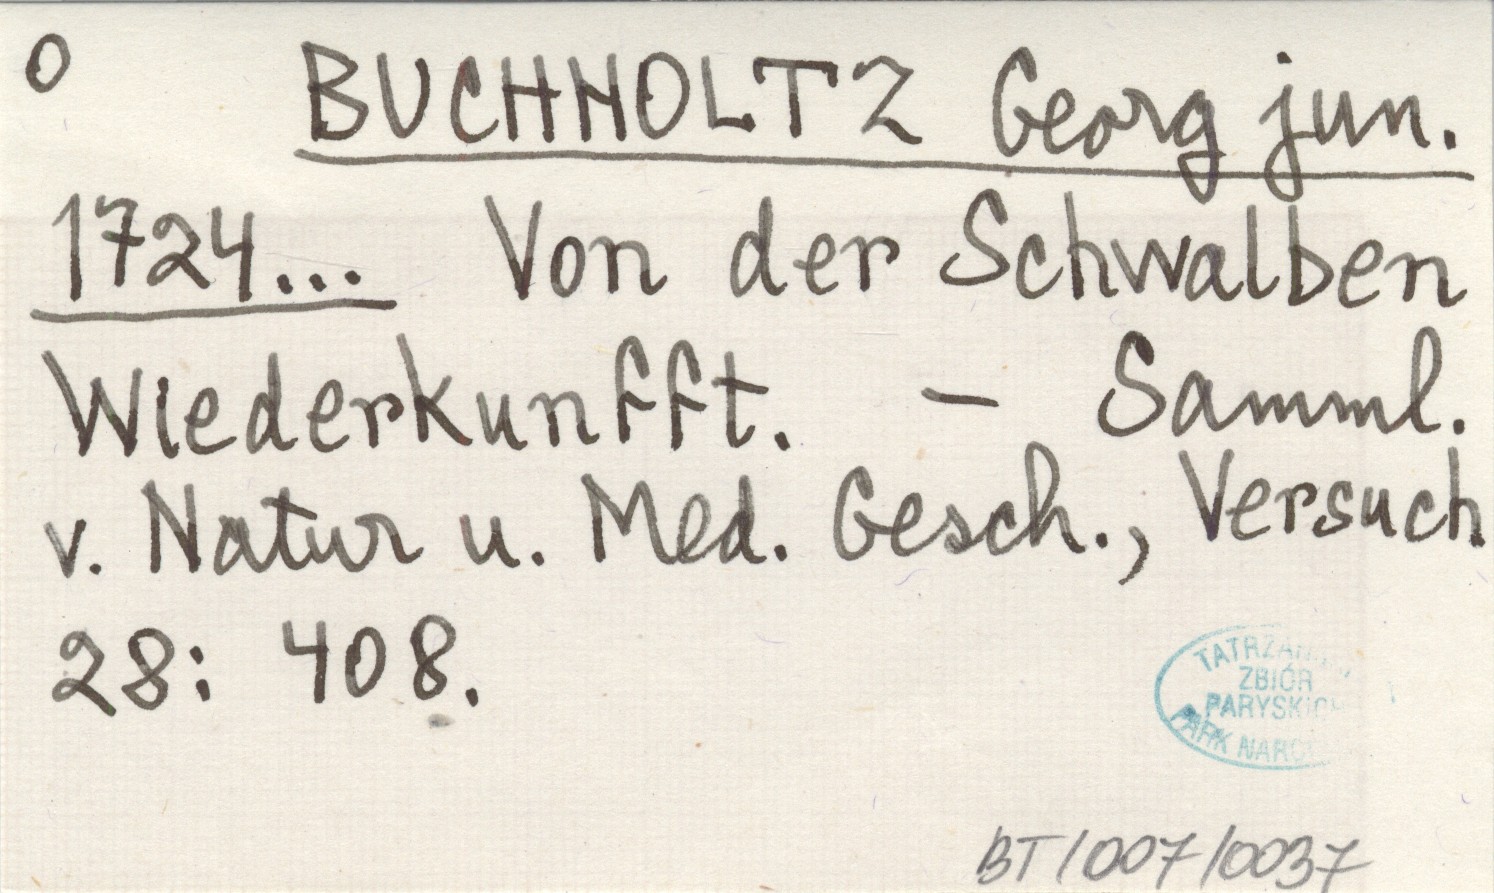 O BUCHHOLTZ Georg jun.
1724... Von der Schwalben
Wiederkunfft. - Samml.
v. Natur u. Med. Gesch., Versuch
28: 408.
ZBIÓR
PARK
BT/007/0037